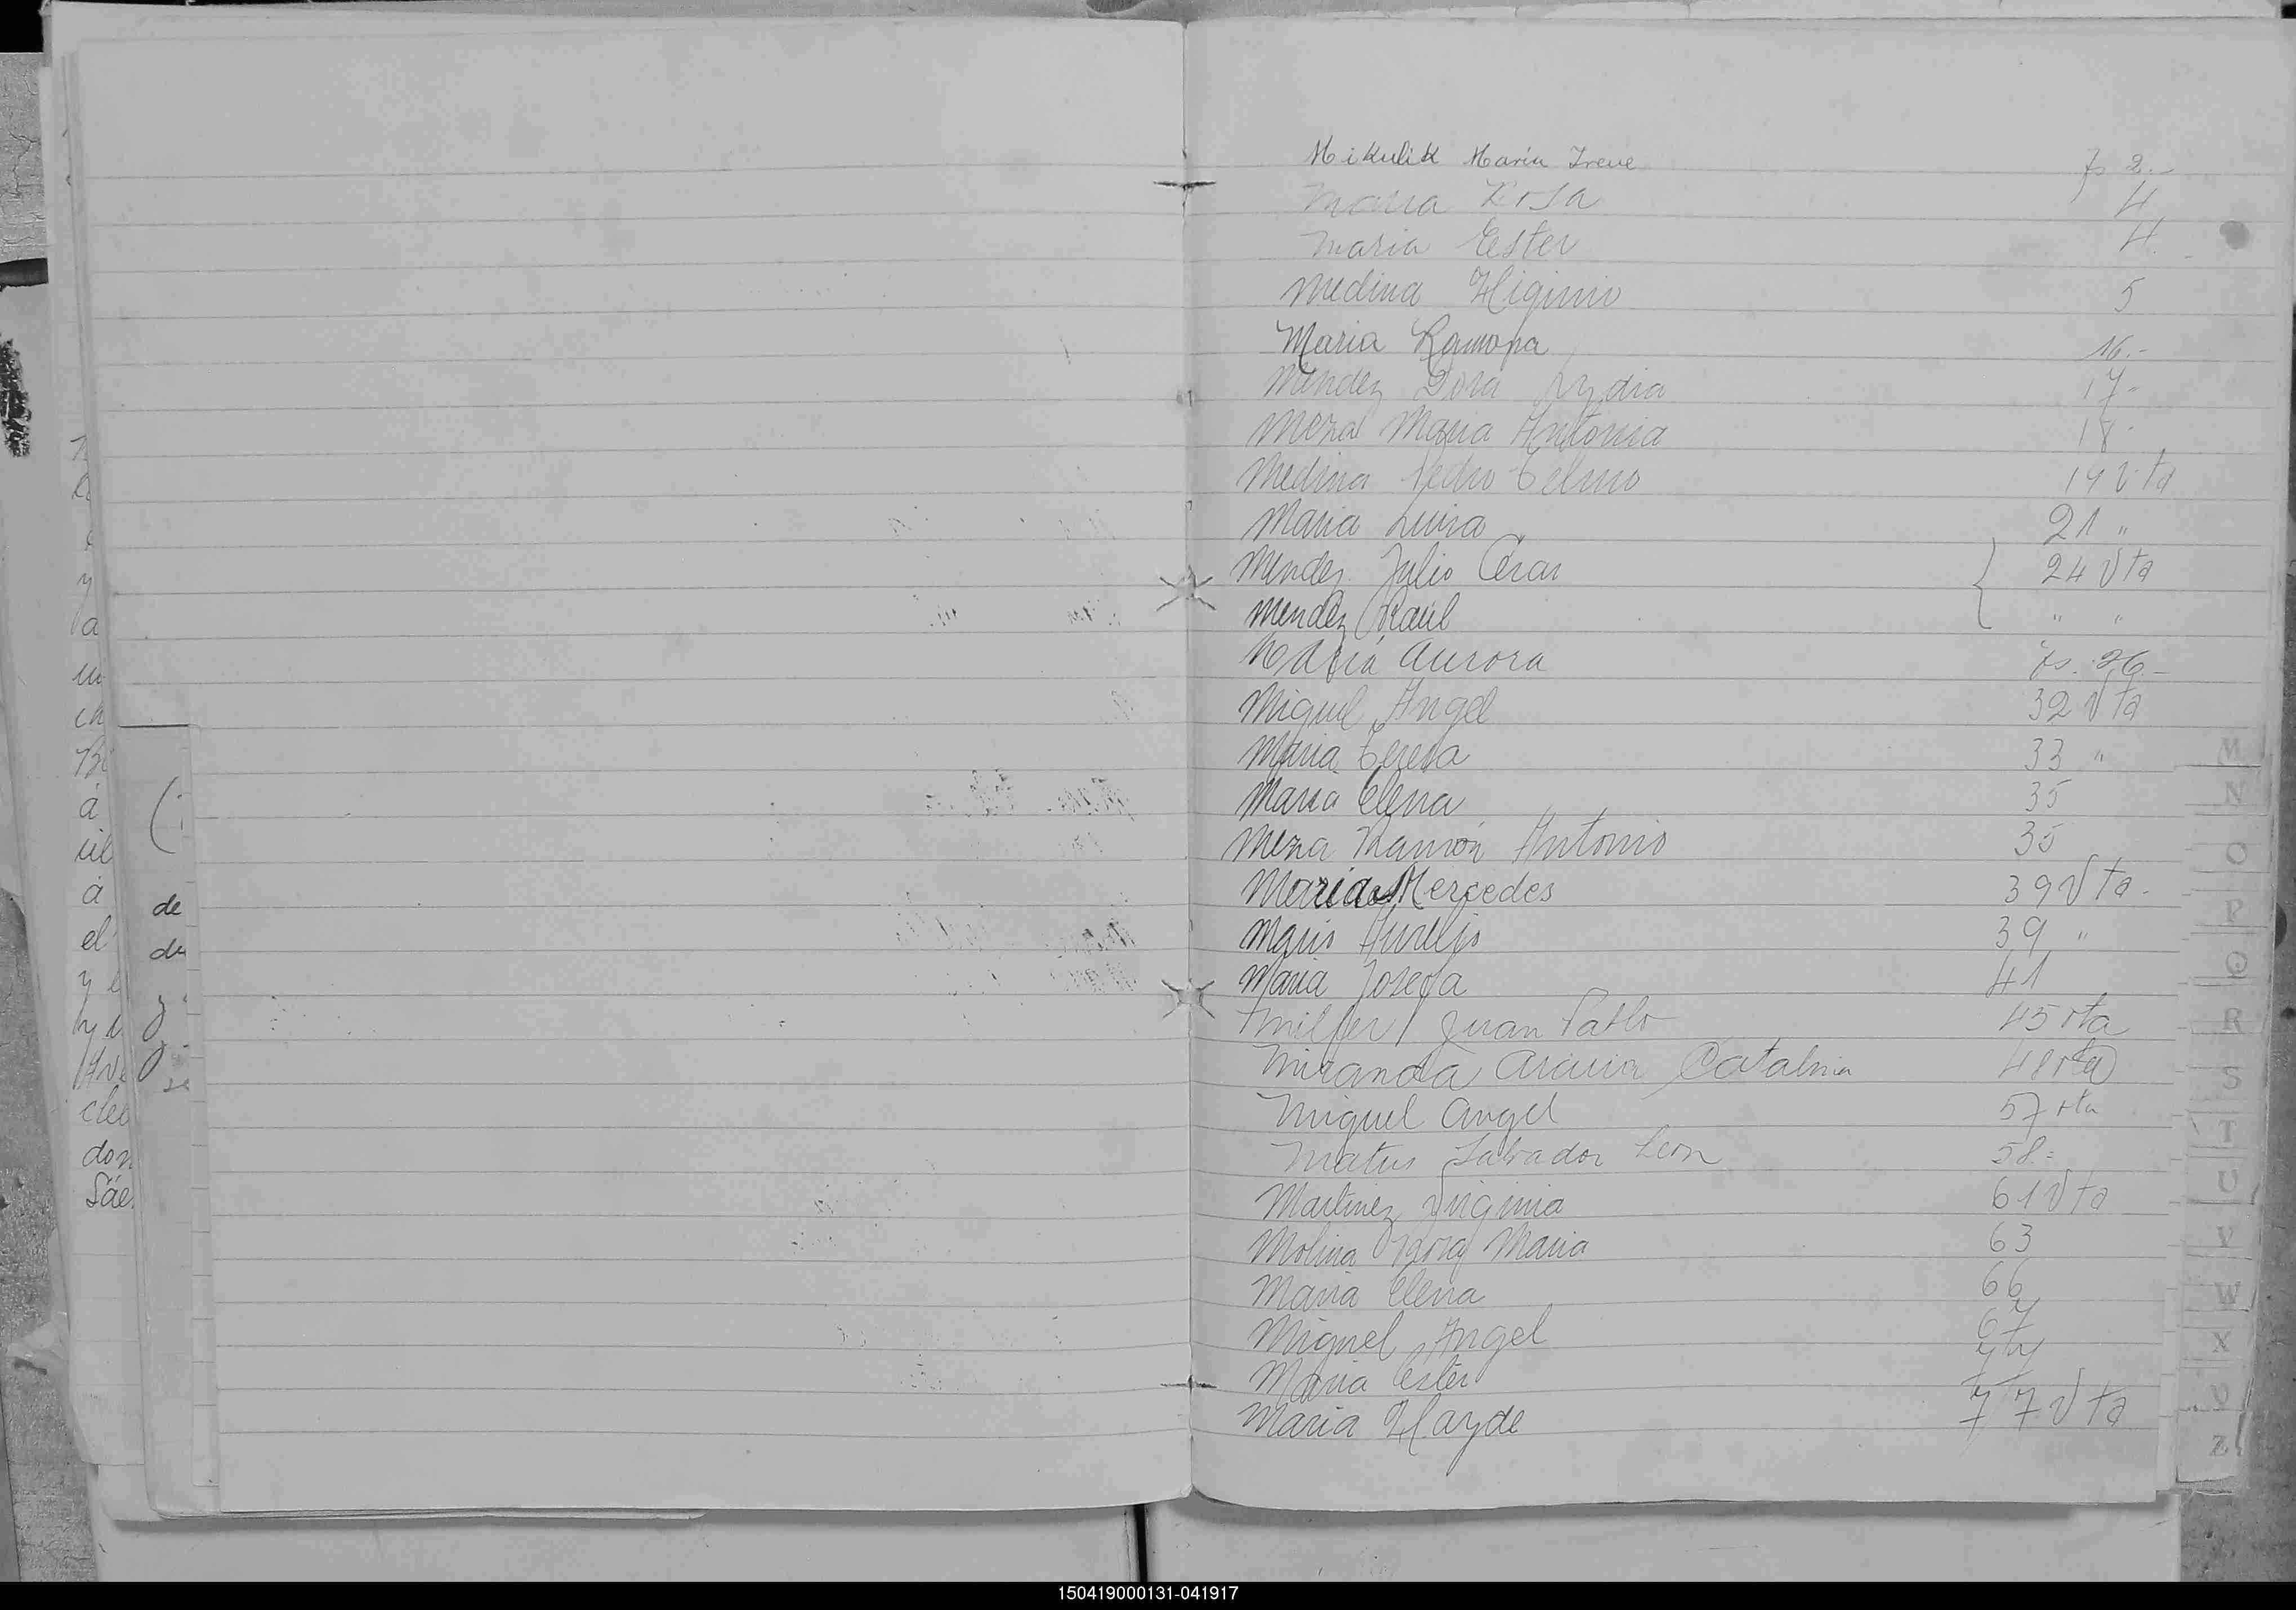 Mikulik Maria Irene fs 2.-
Maria Rosa 4
Maria Ester 4
Medina Higinio 5
Maria Ramona 16.-
Mendez Dora Lydia 17-
Meza Maria Antonia 18-
Medina Pedro Telmo 19 vta
Maria Luisa 21 "
Mendez Julio Cesar 24 vta
Mendez Raul " "
Maria Aurora fs. 26.-
Miguel Angel 32 vta
Maria Teresa 33 "
Maria Elena 35
Meza Ramón Antonio 35
Maria Mercedes 39 vta-
Mario Aurelio 39 "
Maria Josefa 41
Juan Pablo 45 vta
Miranda Catalina 48 vta
Miguel Angel 57 vta
Matus Salvador Leon 58=
Martinez Virginia 61 vta
Molina Rosa Maria 63
Maria Elena 66
Miguel Angel 67
Maria Ester 77
Maria Hayde 77 vta
M
N
O
P
Q
R
S
T
U
V
W
X
Z
de
de
a
ch
á
úl
á
el
y
cleo
don
Sáe
150419000131-041917